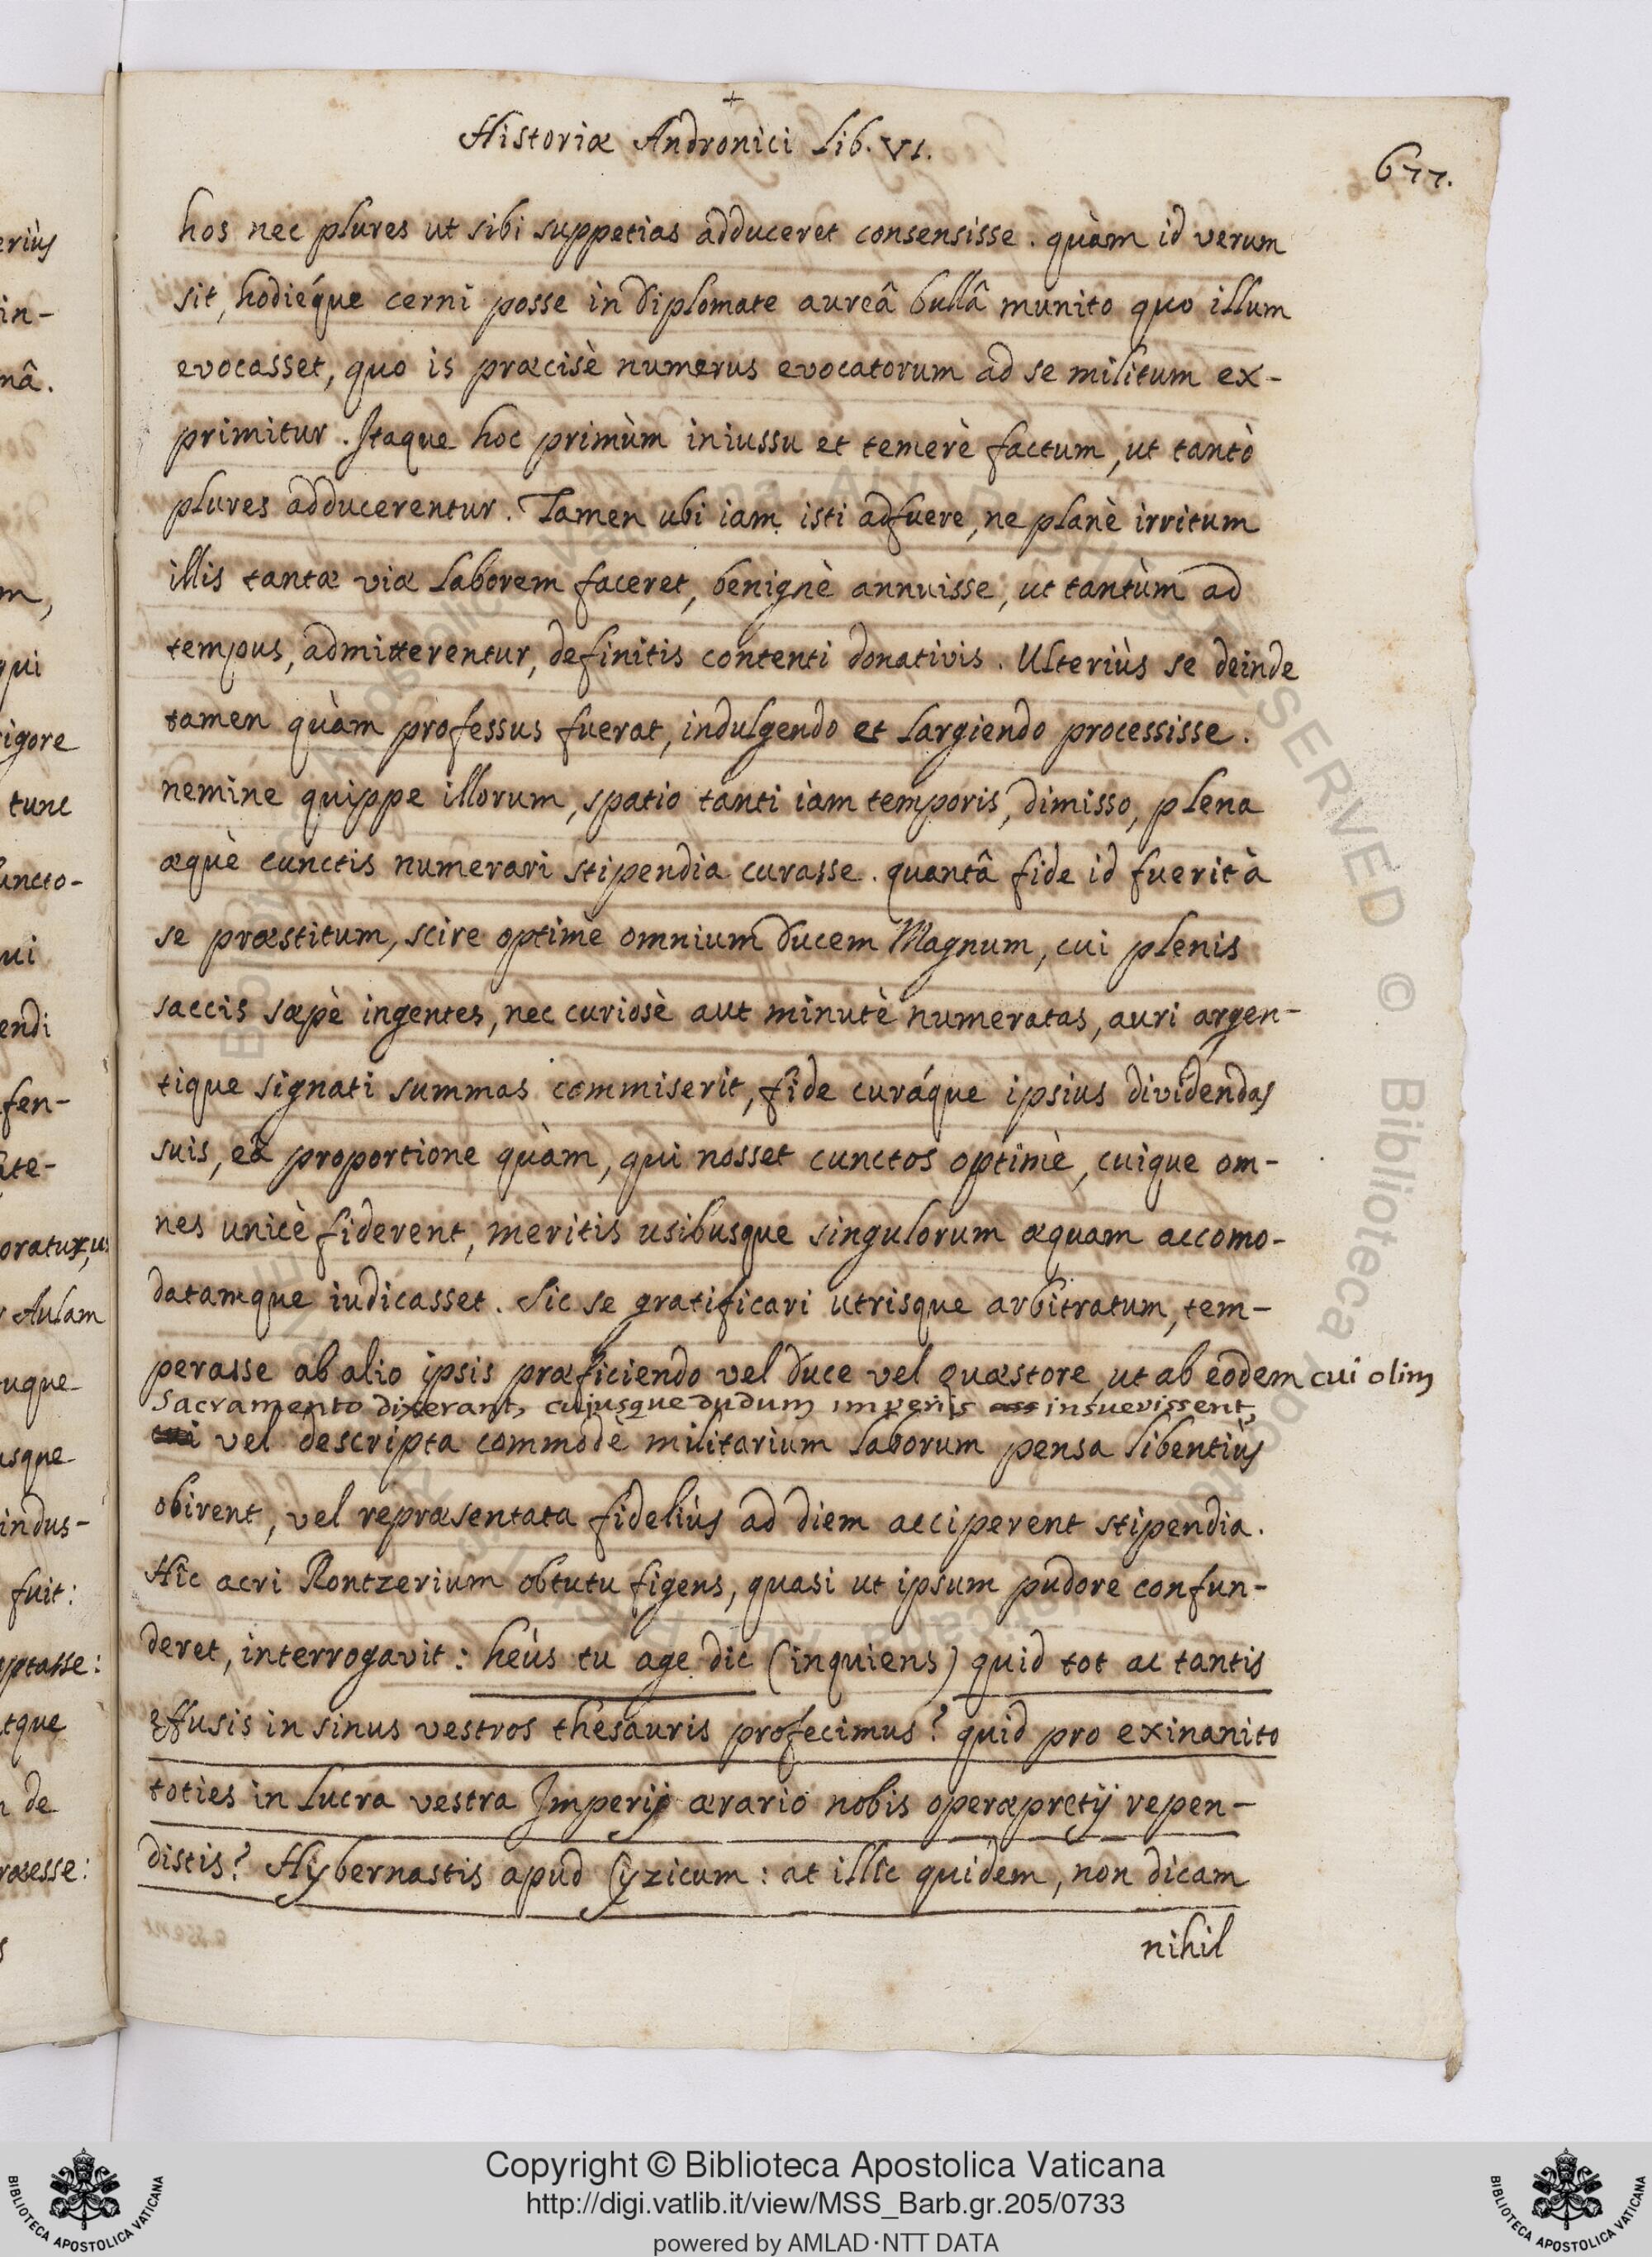 Historiæ Andronici Lib. VI.
677.
hos nec plures ut sibi suppetias adduceret consensisse. quàm id verum
sit, hodiéque cerni posse in diplomate aureâ bullâ munito quo illum
evocasset, quo is præcisè numerus evocatorum ad se militum ex-
primitur. Itaque hoc primùm iniussu et temerè factum, ut tantò
plures adducerentur. Tamen ubi iam isti adfuere, ne planè irritum
illis tantæ viæ laborem faceret, benignè annuisse, ut tantùm ad
tempus, admitterentur, definitis contenti donativis. Ulteriùs se deinde
tamen quàm professus fuerat, indulgendo et largiendo processisse.
nemine quippe illorum, spatio tanti iam temporis, dimisso, plena
æquè cunctis numerari stipendia curasse. quantâ fide id fuerit à
se præstitum, scire optimè omnium Ducem Magnum, cui plenis
saccis sæpè ingentes, nec curiosè aut minutè numeratas, auri argen-
tique signati summas commiserit, fide curáque ipsius dividendas
suis, eâ proportione quàm, qui nosset cunctos optimè, cuique om-
nes unicè fiderent, meritis usibusque singulorum æquam accomo-
datamque iudicasset. Sic se gratificari utrisque arbitratum, tem-
perasse ab alio ipsis præficiendo vel duce vel quæstore, ut ab eodem cui olim
Sacramento dixerant, cujusque dudum imperijs insuevissent,
vel descripta commodè militarium laborum pensa libentiùs
obirent, vel repræsentata fideliùs ad diem acciperent stipendia.
Hîc acri Rontzerium obtutu figens, quasi ut ipsum pudore confun-
deret, interrogavit: heùs tu age dic (inquiens) quid tot ac tantis
effusis in sinus vestros thesauris profecimus? quid pro exinanito
toties in lucra vestra Imperij ærario nobis operæpretij repen-
distis? Hybernastis apud Cyzicum: at illîc quidem, non dicam
nihil
erius
in-
nâ.
m,
qui
igore
tunc
uncto-
ui
endi
fen-
ite-
Aulam
uque
usque
indus-
fuit:
ptasse:
tque
de
ræesse:
Copyright © Biblioteca Apostolica Vaticana
http://digi.vatlib.it/view/MSS_Barb.gr.205/0733
powered by AMLAD·NTT DATA
BIBLIOTECA APOSTOLICA VATICANA
BIBLIOTECA APOSTOLICA VATICANA